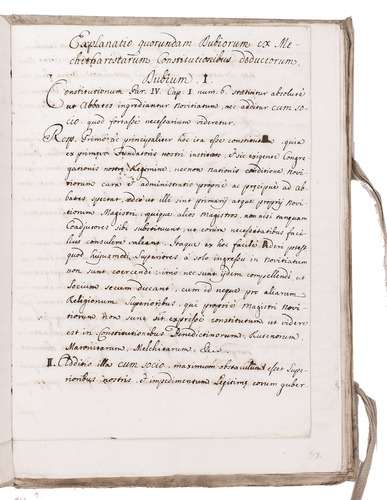 Explanatio quorundam Dubiorum ex Me-
chitharostarum Constitutionibus deductorum.
Dubium I.
Constitutionum Par. IV. Cap. I num. 6 statuitur absolute
ut Abbates ingrediantur Novitiatum, nec additur cum so-
cio, quod forsasse necessarium videretur.
Resp. Primò, & principaliter hoc ita esse constitutum quia
ex primævo Fundatoris nostri instituto, & sic exigente Congre-
gationis nostræ Regimine, necnon Nationis conditione Novi-
tiorum cura & administratio propriè ac præcipuè ad Ab-
bates spectat, adeo ut illi sint primarij atque proprij Novi-
tiorum Magistri, quique alios Magistros, non nisi tanquam
Coadjutores sibi substituunt, ut eorum necessitatibus faci-
lius consulere valeant. Itaque ex hoc facilè dici potest
quod hujusmodi Superiores à solo ingressu in Novitiatum
non sunt coercendi, imò nec sunt ijdem compellendi ut
Socium secum ducant, cum id neque pro aliarum
Religionum Superioribus, qui proprie Magistri Novi-
tiorum non sunt sit expresse constitutum, ut videre
est in Constitutionibus Benedictinorum, Rutenorum,
Maronitarum, Melchitarum, &c.
II. Additio illa cum socio, maximum obstaculum esset Supe-
rioribus nostris, & impedimentum Legitimi eorum guber-